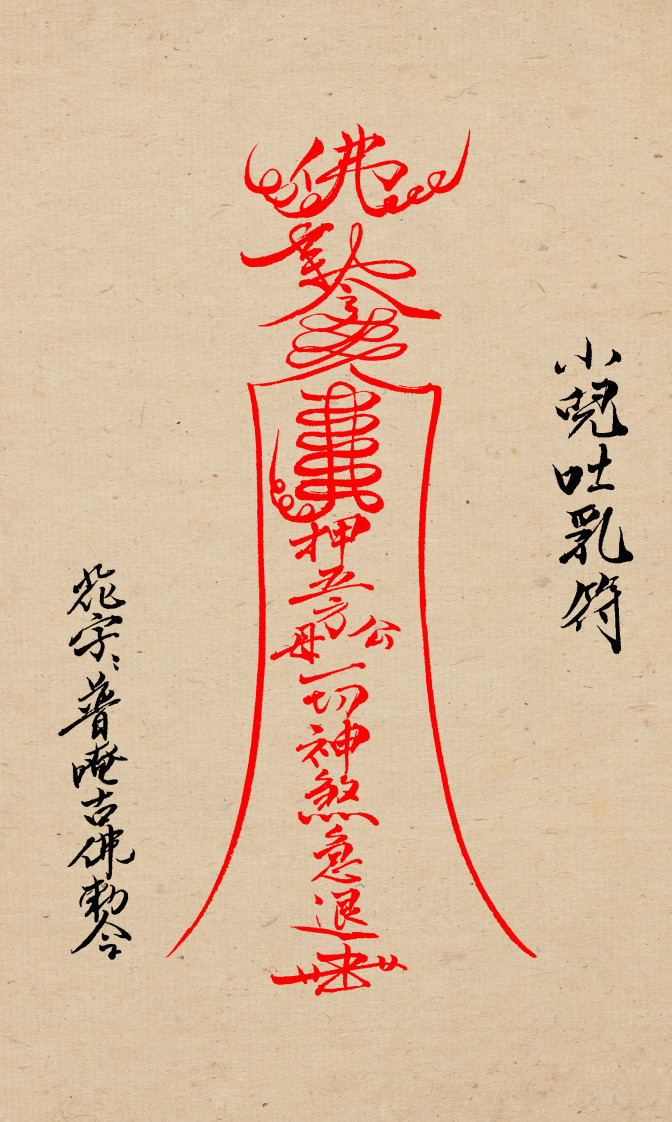 小兒吐乳符
佛
敕令
押五方公母一切神煞急退
花字：普唵古佛勅令